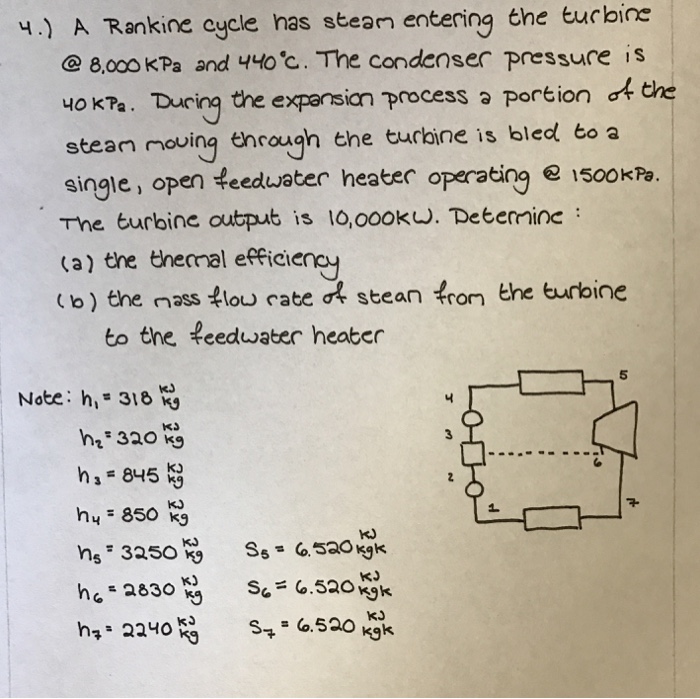 4.) A Rankine cycle has steam entering the turbine
@ 8,000 KPa and 440°C. The condenser pressure is
40 KPa. During the expansion process a portion of the
steam moving through the turbine is bled to a
single, open feedwater heater operating @ 1500KPa.
The turbine output is 10,000KW. Determine :
(a) the thermal efficiency
(b) the mass flow rate of steam from the turbine
to the feedwater heater
Note: h₁ = 318 KJ/kg
h₂ = 320 KJ/kg
h₃ = 845 KJ/kg
h₄ = 850 KJ/kg
h₅ = 3250 KJ/kg S₅ = 6.520 KJ/kgK
h₆ = 2830 KJ/kg S₆ = 6.520 KJ/kgK
h₇ = 2240 KJ/kg S₇ = 6.520 KJ/kgK
5
4
3
6
2
1
7